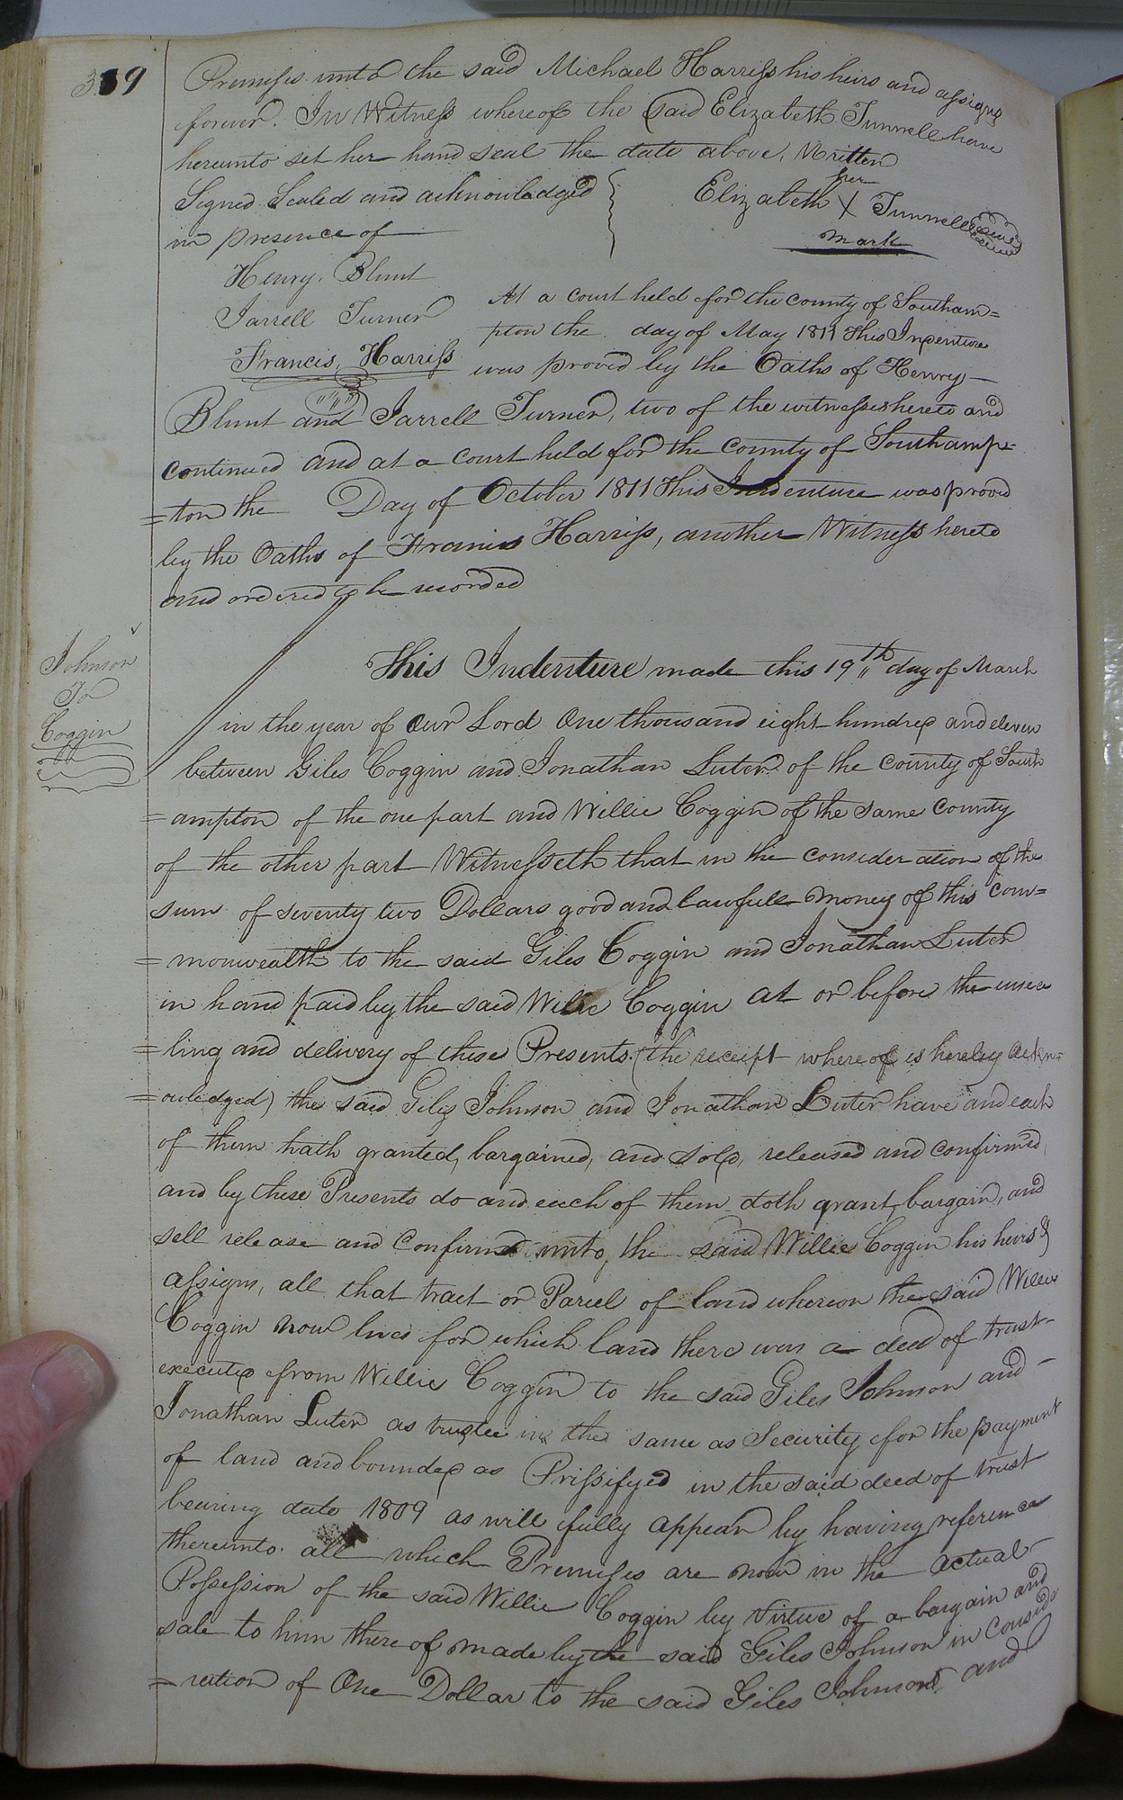 339
Premises unto the said Michael Harriss his heirs and assigns
forever. In Witness whereof the said Elizabeth Tunnell have
hereunto set her hand seal the date above, Written
Signed Sealed and acknowledged
in presence of
her
Elizabeth X Tunnell
mark
Henry Blunt
Jarrell Turner
Francis Harriss
At a court held for the county of Southam=
pton the day of May 1811 This Indenture
was proved by the Oaths of Henry
Blunt and Jarrell Turner, two of the witnesses hereto and
continued and at a court held for the county of Southamp=
=ton the Day of October 1811 This Indenture was proved
by the Oaths of Francis Harriss, another Witness hereto
and ordered to be recorded
Johnson
To
Coggin
This Indenture made this 19th day of March
in the year of Our Lord One thousand eight hundred and eleven
between Giles Coggin and Jonathan Luter of the county of South
=ampton of the one part and Willie Coggin of the same county
of the other part Witnesseth that in the consideration of the
sum of seventy two Dollars good and lawfull money of this com=
=monwealth to the said Giles Coggin and Jonathan Luter
in hand paid by the said Willie Coggin at or before the ensea
=ling and delivery of these Presents (the receipt whereof is hereby ackn=
=owledged) the said Giles Johnson and Jonathan Luter have and each
of them hath granted, bargained, and sold, released and confirmed,
and by these Presents do and each of them doth grant, bargain, and
sell release and confirm unto, the said Willie Coggin his heirs &
assigns, all that tract or Parcel of land whereon the said Willie
Coggin now lives for which land there was a deed of trust
executed from Willie Coggin to the said Giles Johnson and
Jonathan Luter as trustee in the same as Security for the payment
of land and bounded as in the said deed of trust
bearing date 1809 as will fully appear by having reference
thereunto all which Premises are now in the actual
Possession of the said Willie Coggin by Virtue of a bargain and
sale to him there of made by the said Giles Johnson in Conside
=ration of One Dollar to the said Giles Johnson and